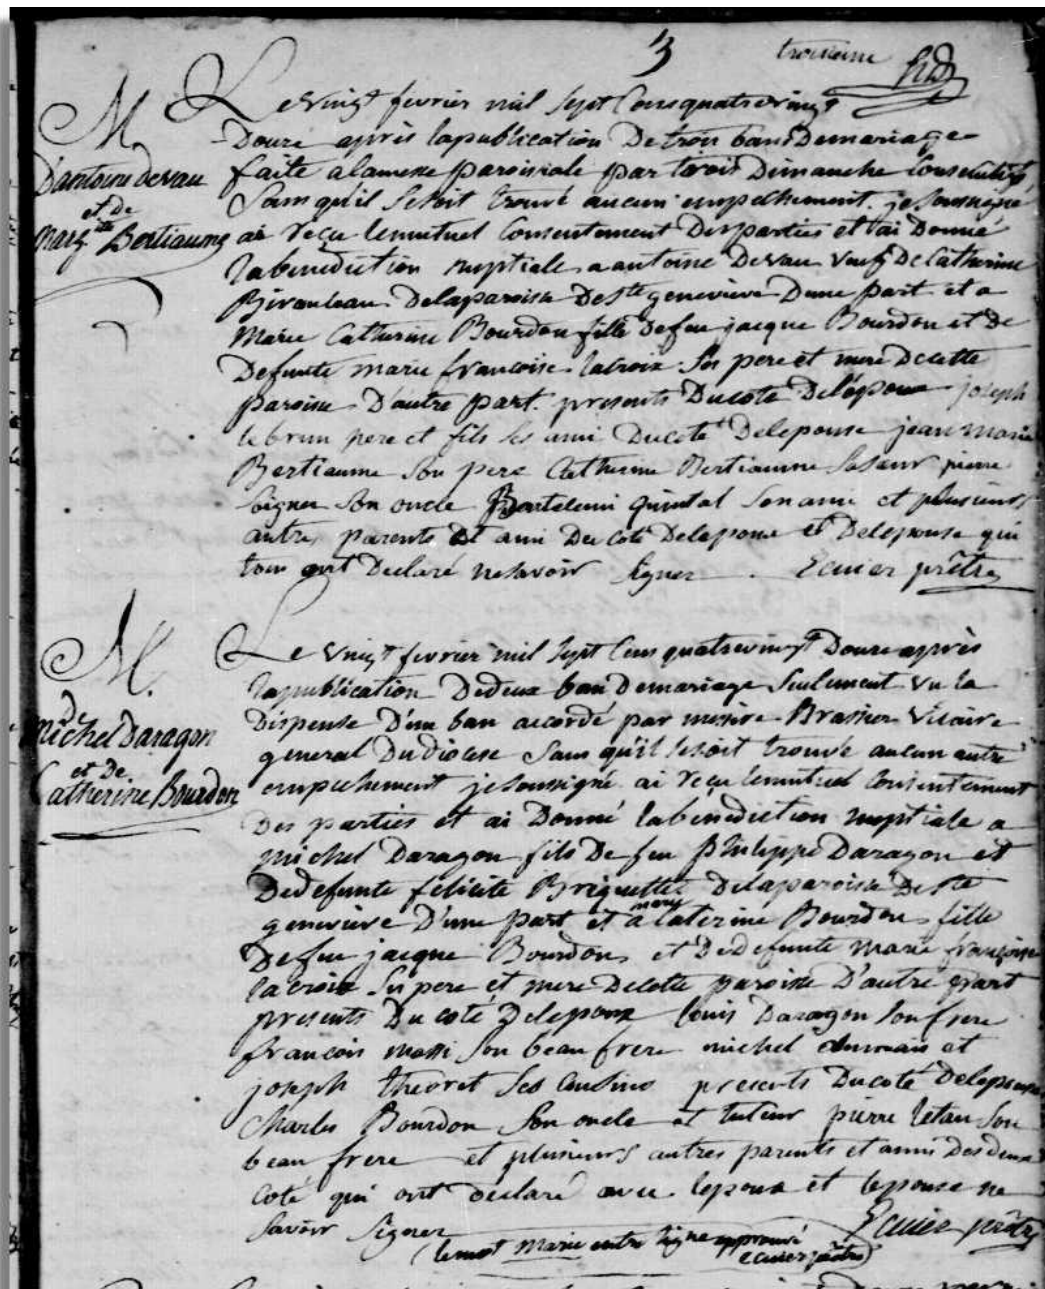 3 troisieme
M.
D'antoine devau
et de
Marg^ite Bertiaume
Le vingt fevrier mil sept Cens quatrevingt
Douze après lapublication De trois bans Demariage
faite alamesse paroisiale par trois Dimanche Consecutifs
Sans qu'il Sesoit trouvé aucun empechement. je Soussigné
ai reçu lemutuel Consentement Des parties et ai Donné
la benediction nuptiale a antoine Devau veuf De Catherine
Delaparoisse De Ste genevieve Dune part et a
Marie Catherine Bourdon fille Defeu jacque Bourdon et de
Defunte marie françoise lacroix Ses pere et mere Decette
paroisse D'autre part. presents Ducoté Delépoux joseph
lebrun pere et fils Ses ami Ducoté Delepouse jean marie
Bertiaume Son pere Catherine Bertiaume Sasœur pierre
Son oncle Bartelemi quintal Son ami et plusieurs
autres parents et ami Du Coté Delepoux et Delepouse qui
tous ont Declaré nesavoir Signer. Ecuier prêtre
M.
D
Michel Daragon
et De
Catherine Bourdon
Le vingt fevrier mil Sept Cens quatrevingt Douze après
lapublication Dedeux ban Demariage Seulement vu la
Dispense D'un ban accordé par messire Brassier Vicaire
general Dudiocese Sans qu'il Sesoit trouvé aucun autre
empechement je Soussigné ai reçu lemutuel Consentement
Des parties et ai Donné labenediction nuptiale a
michel Daragon fils De feu Philippe Daragon et
Dedefunte felicité Briquette Delaparoisse De Ste
genevieve D'une part et à mary Caterine Bourdon fille
Defeu jacque Bourdon et Dedefunte marie françoise
lacroix Ses pere et mere Decette paroisse D'autre part
presents Du coté Delepoux louis Daragon Son frere
francois massi Son beau frere michel et
joseph theoret Ses Cousins presents Ducoté Delepouse
Charles Bourdon Son oncle et tuteur pierre letan Son
beau frere et plusieurs autres parents et amis Des deux
Coté qui ont déclaré avec lepoux et lepouse ne
Savoir Signer Ecuier prêtre
(lemot marie entre ligne approuvé
ecuier prêtre)